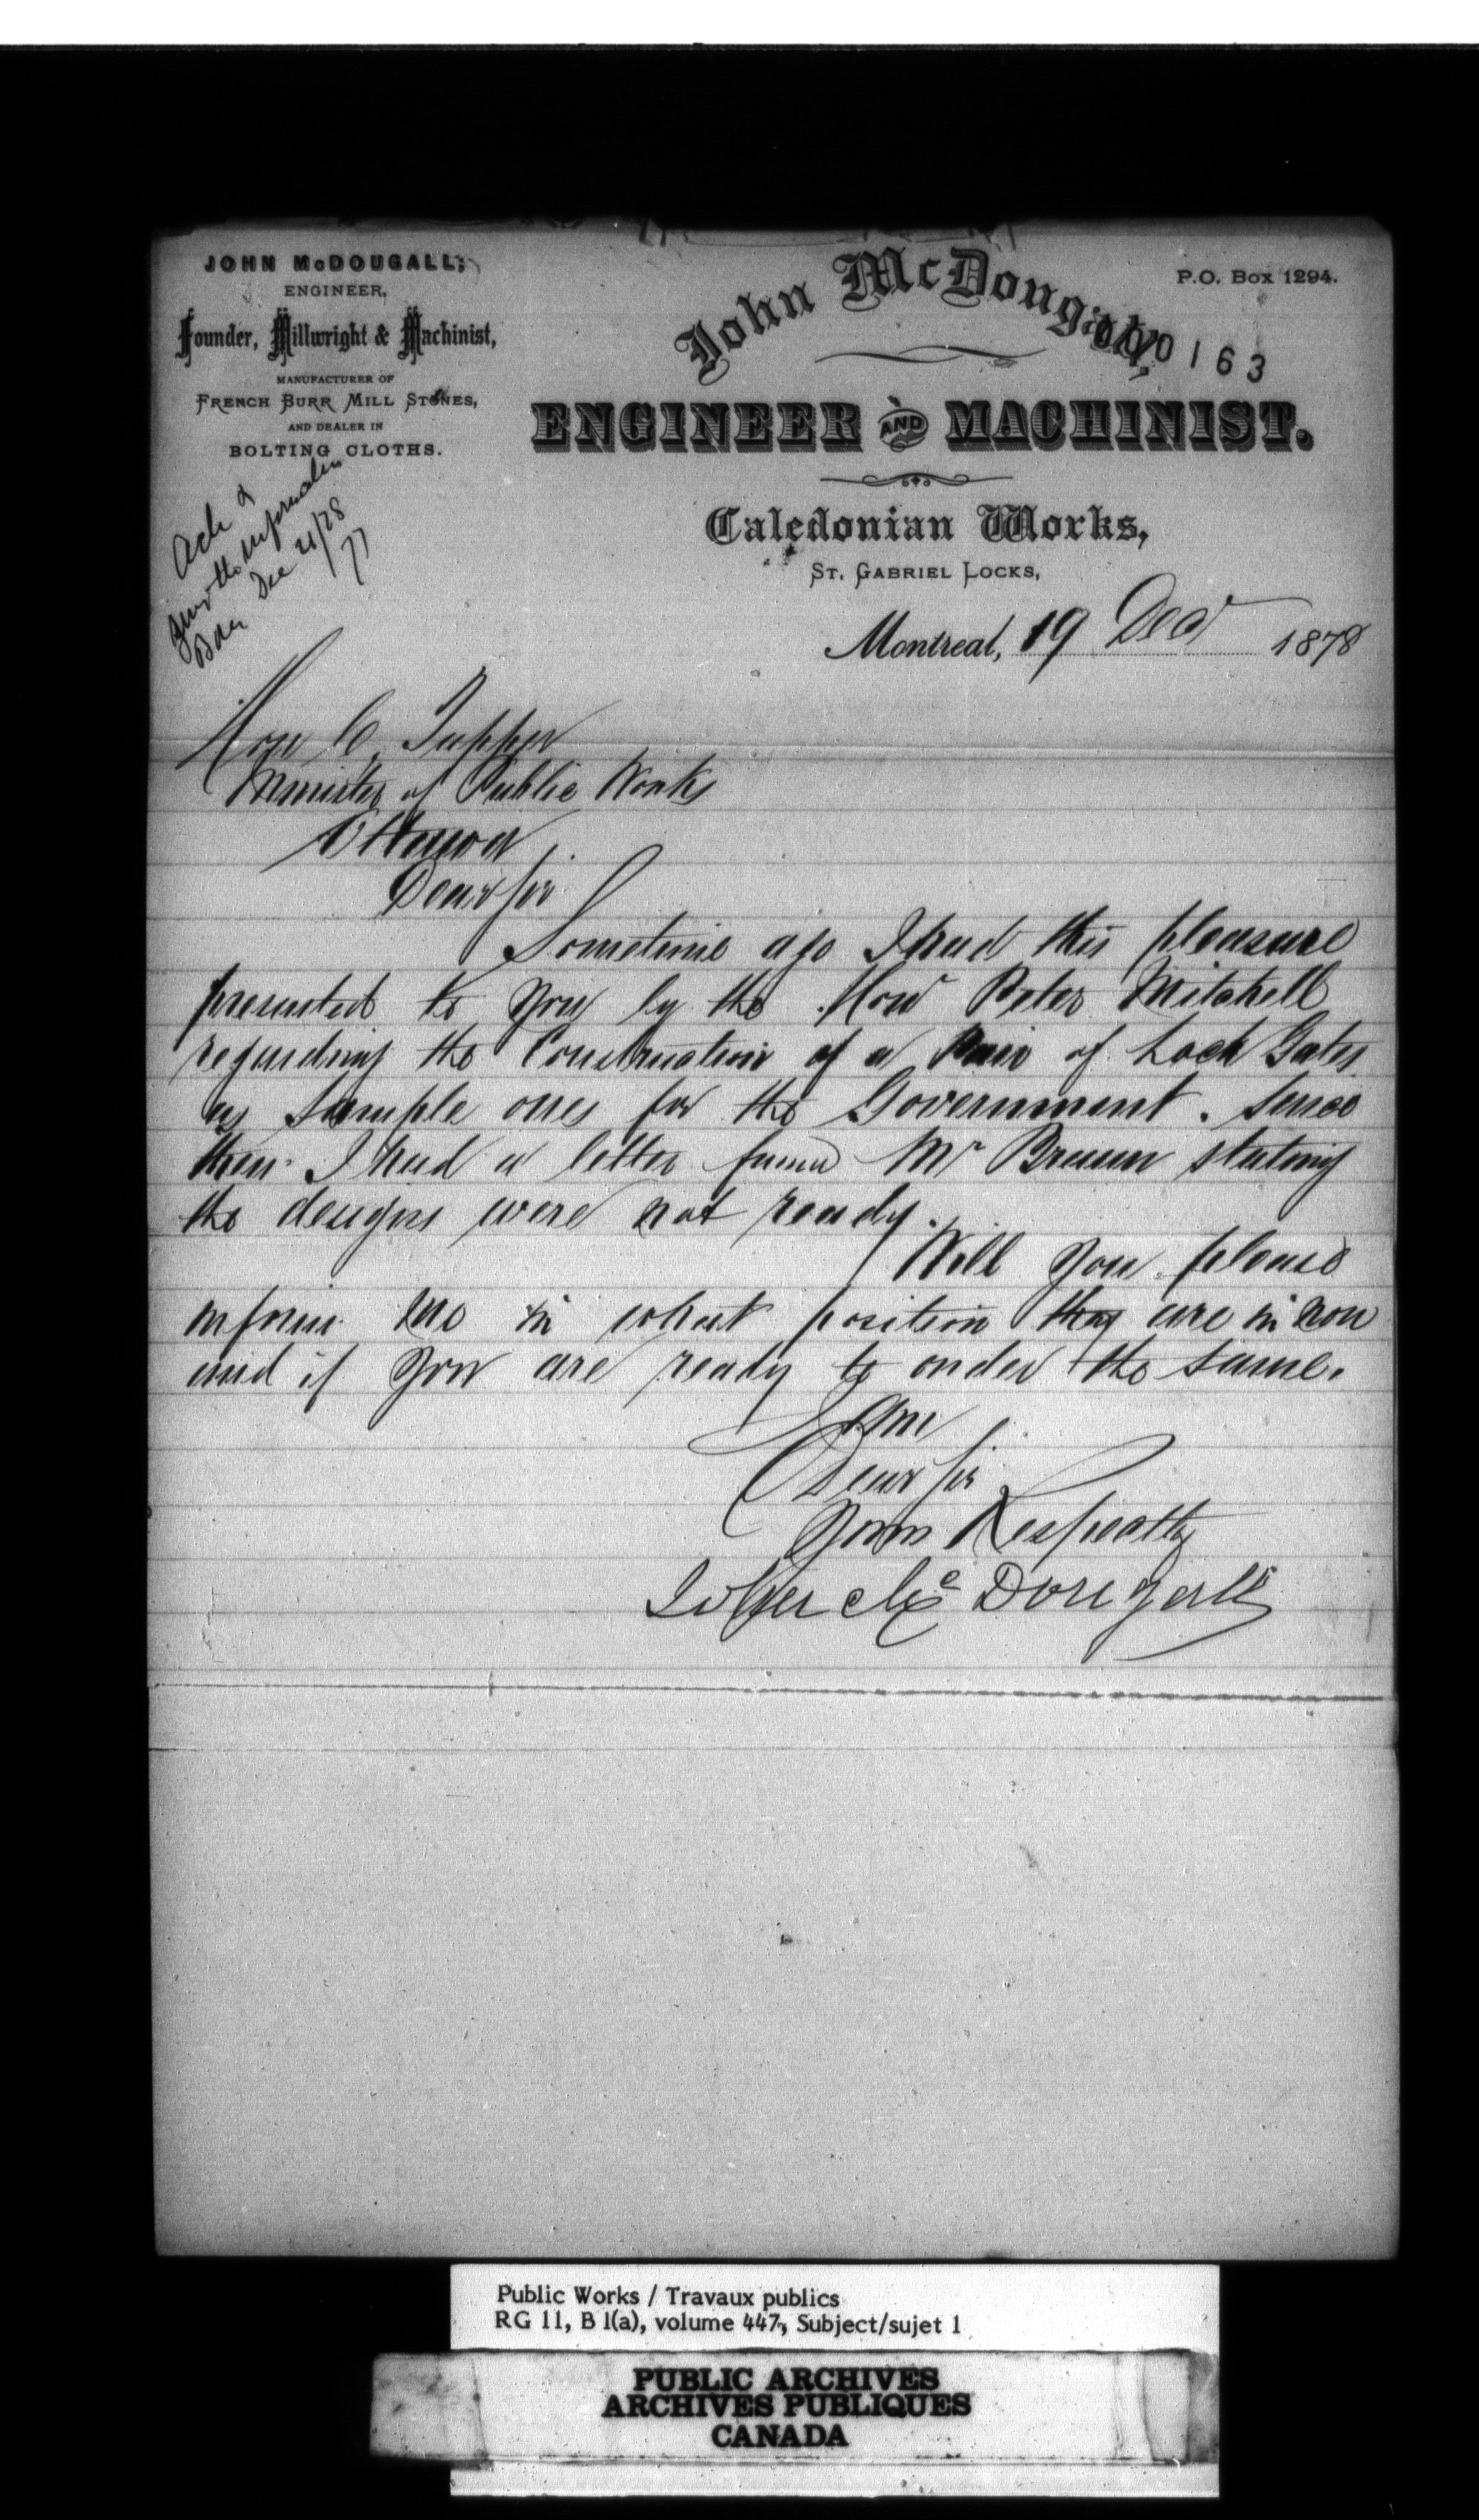 JOHN McDOUGALL,
ENGINEER,
Founder, Millwright & Machinist,
MANUFACTURER OF
FRENCH BURR MILL STONES,
AND DEALER IN
BOLTING CLOTHS.
P.O. Box 1294.
John McDougall,
163
ENGINEER AND MACHINIST.
Caledonian Works,
ST. GABRIEL LOCKS,
Montreal, 19 Decr 1878
Ack &
information
Dec 21/78
Hon C. Tupper
Minister of Public Works
Ottawa
Dear Sir
Sometime ago I had this pleasure
presented to you by the Hon Peter Mitchell
regarding the Construction of a Pair of Lock Gates
as Sample ones for the Government. Since
then I had a letter from Mr Braun stating
the designs were not ready.
Will you please
inform me in what position they are in now
and if you are ready to order the same.
I am
Dear Sir
Yours Respectfy
John McDougall
Public Works / Travaux publics
RG 11, B 1(a), volume 447, Subject/sujet 1
PUBLIC ARCHIVES
ARCHIVES PUBLIQUES
CANADA